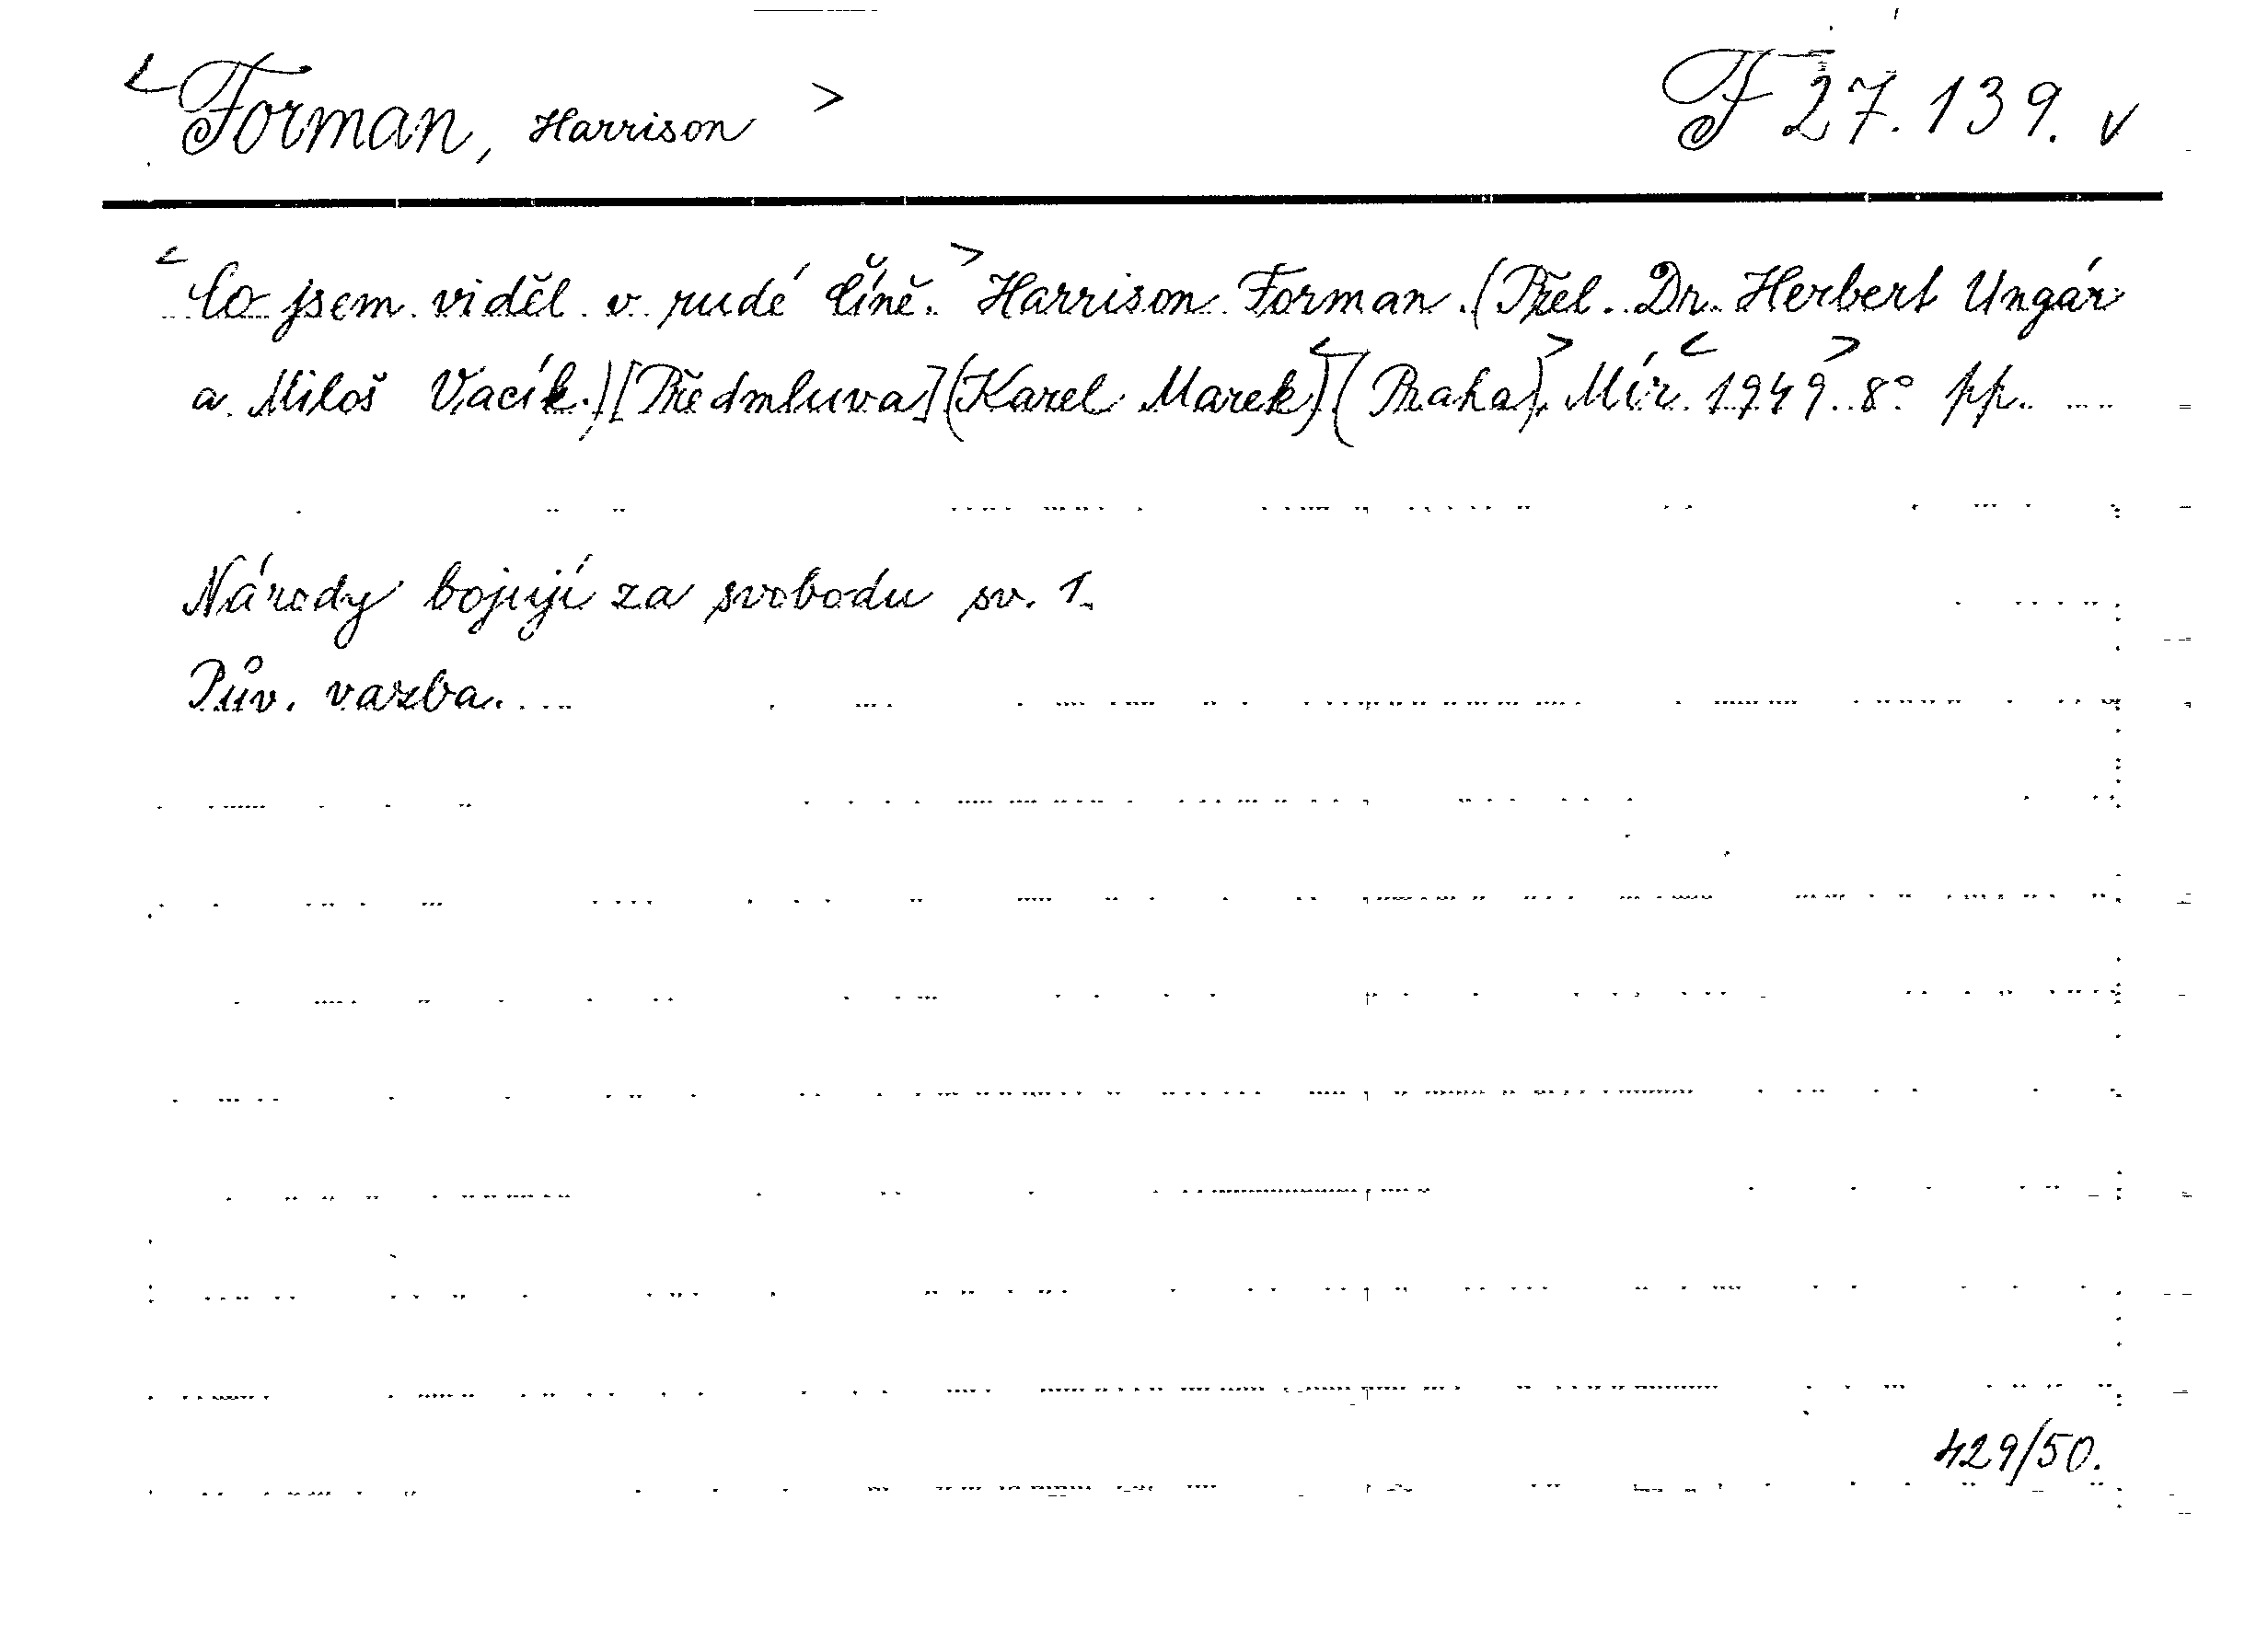 <Forman, Harrison> F 27.139. v
<Co jsem viděl v rudé Číně.> Harrison Forman. (Přel. Dr. Herbert Ungár
a Miloš Vacík.) [Předmluva] (Karel Marek) <(Praha)>, Mír <1949>. 8° pp.
Národy bojují za svobodu sv. 1.
Pův. vazba.
429/50.